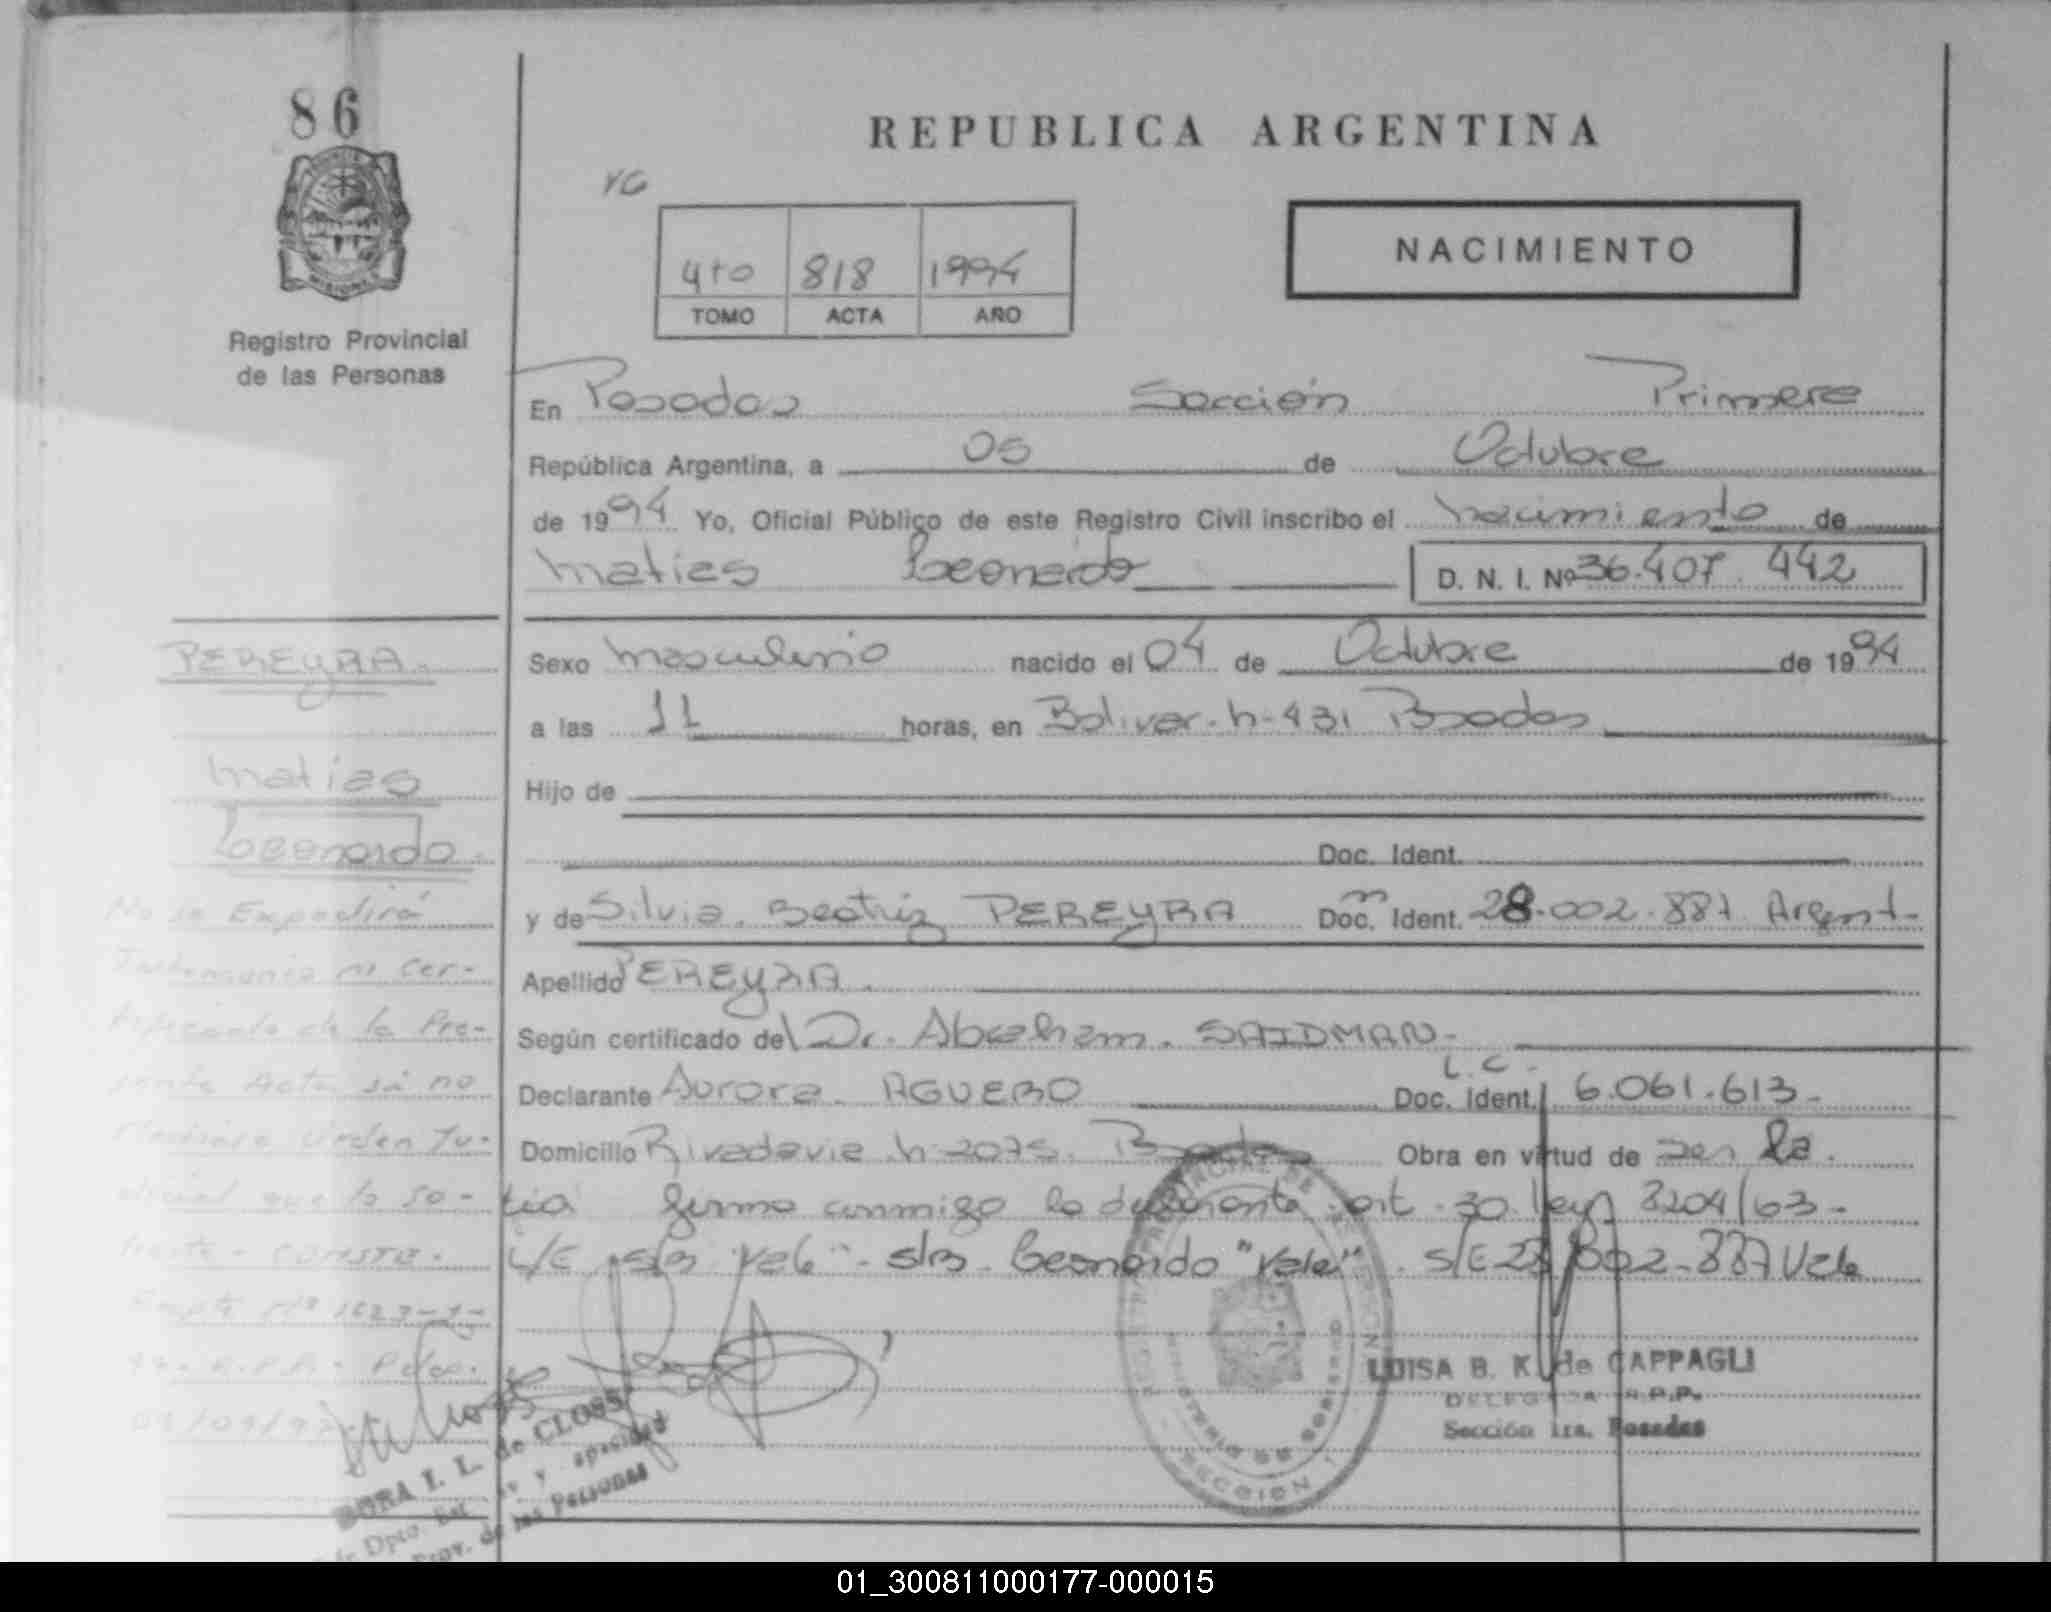 86
REPUBLICA ARGENTINA
NACIMIENTO
4to 818 1994
TOMO ACTA AÑO
Registro Provincial
de las Personas
En Posadas Sección Primera
República Argentina, a 05 de Octubre
de 1994 Yo, Oficial Público de este Registro Civil inscribo el nacimiento de
Matias Leonardo D. N. I. Nº 36.407.442
PEREYRA.
Matias
Leonardo.
No se Expedirá
Testimonio ni Cer-
tificado de la Pre-
sente Acta si no
mediare Orden Ju-
dicial que lo so-
licite. CONSTE.
Expte Nº 1623-
R.P.P.
Sexo Masculino nacido el 04 de Octubre de 1994
a las 11 horas, en Bolivar. n-431 Posadas
Hijo de
Doc. Ident.
y de Silvia. Beatriz PEREYRA Doc. Ident. 28.002.887 Argent-
Apellido PEREYRA.
Según certificado del Dr. Abraham. SAIDMAN-
Declarante Aurora. AGUERO L.C. Doc. Ident. 6.061.613-
Domicilio Rivadavia n-2075. Posadas Obra en virtud de ser la
tia firma conmigo la declarante art. 30 ley 8204/63-
s/B Leonardo "Vale". S/E 28.002.887 Vale
LUISA B. K. de CAPPAGLI
DELEGADA R.P.P.
Sección 1ra. Posadas
DORA I. L. de CLOSS
Prov. de las Personas
SECCION 1
01_300811000177-000015